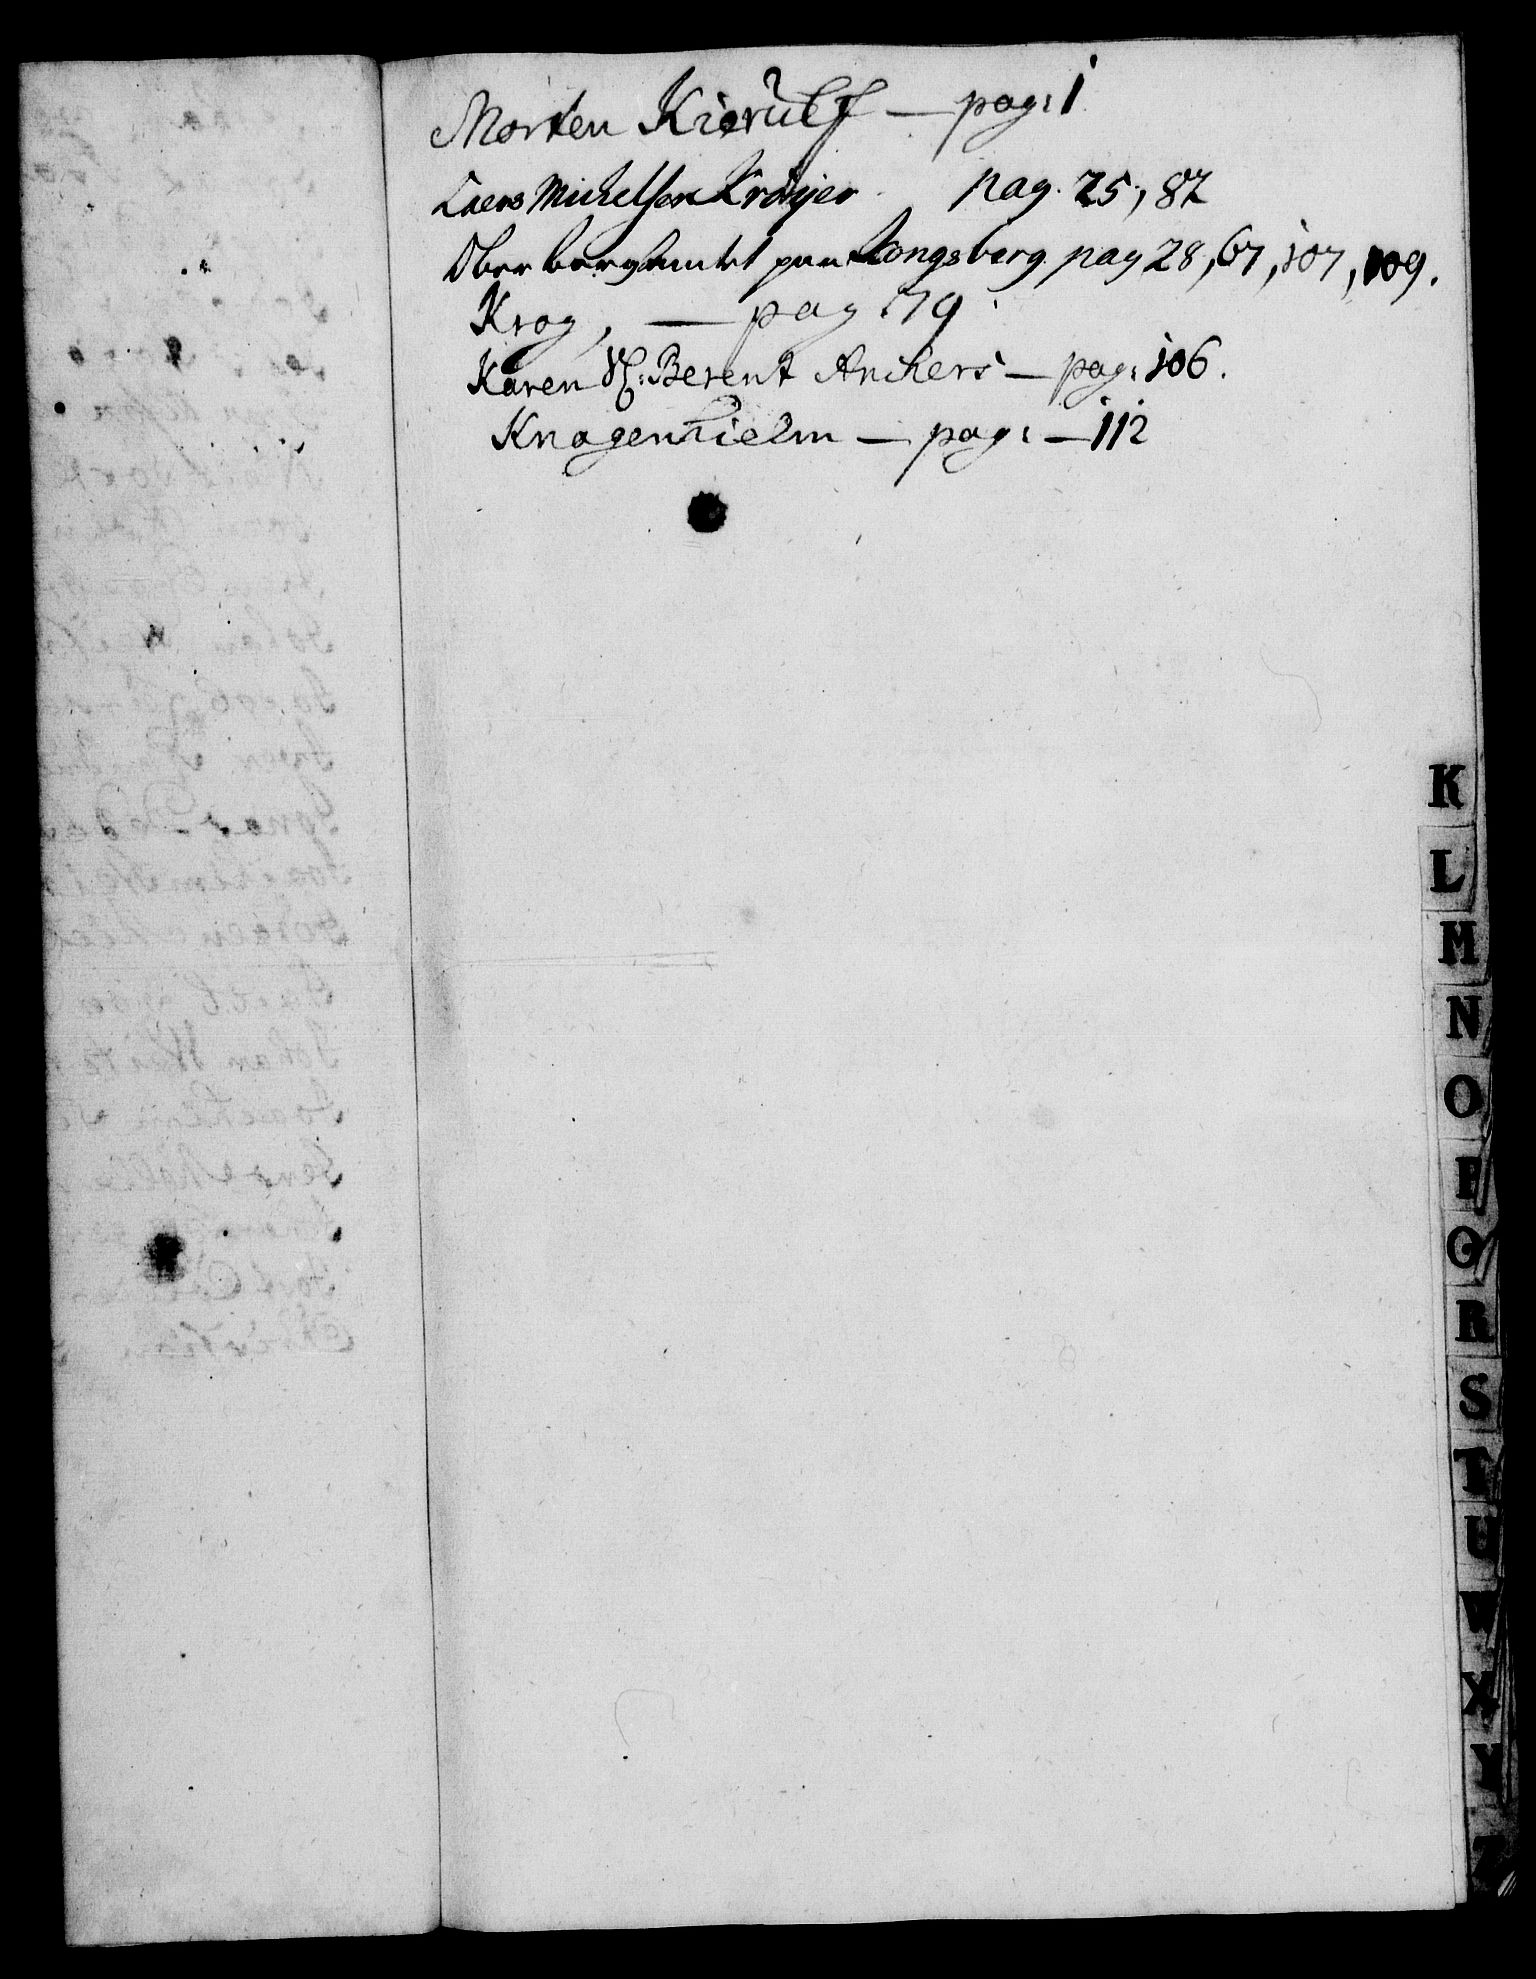 Morten Kierulf — pag: 1
Laers Michelsen Krøyer pag. 25, 87
Oberbergamtet paa Kongsberg pag 28, 67, 107, 109.
Krag, — pag. 79
Karen Sl: Berent Anchers — pag: 106.
Knagenhielm — pag: — 112
K
L
M
N
O
P
Q
R
S
T
U
W
X
Y
Z